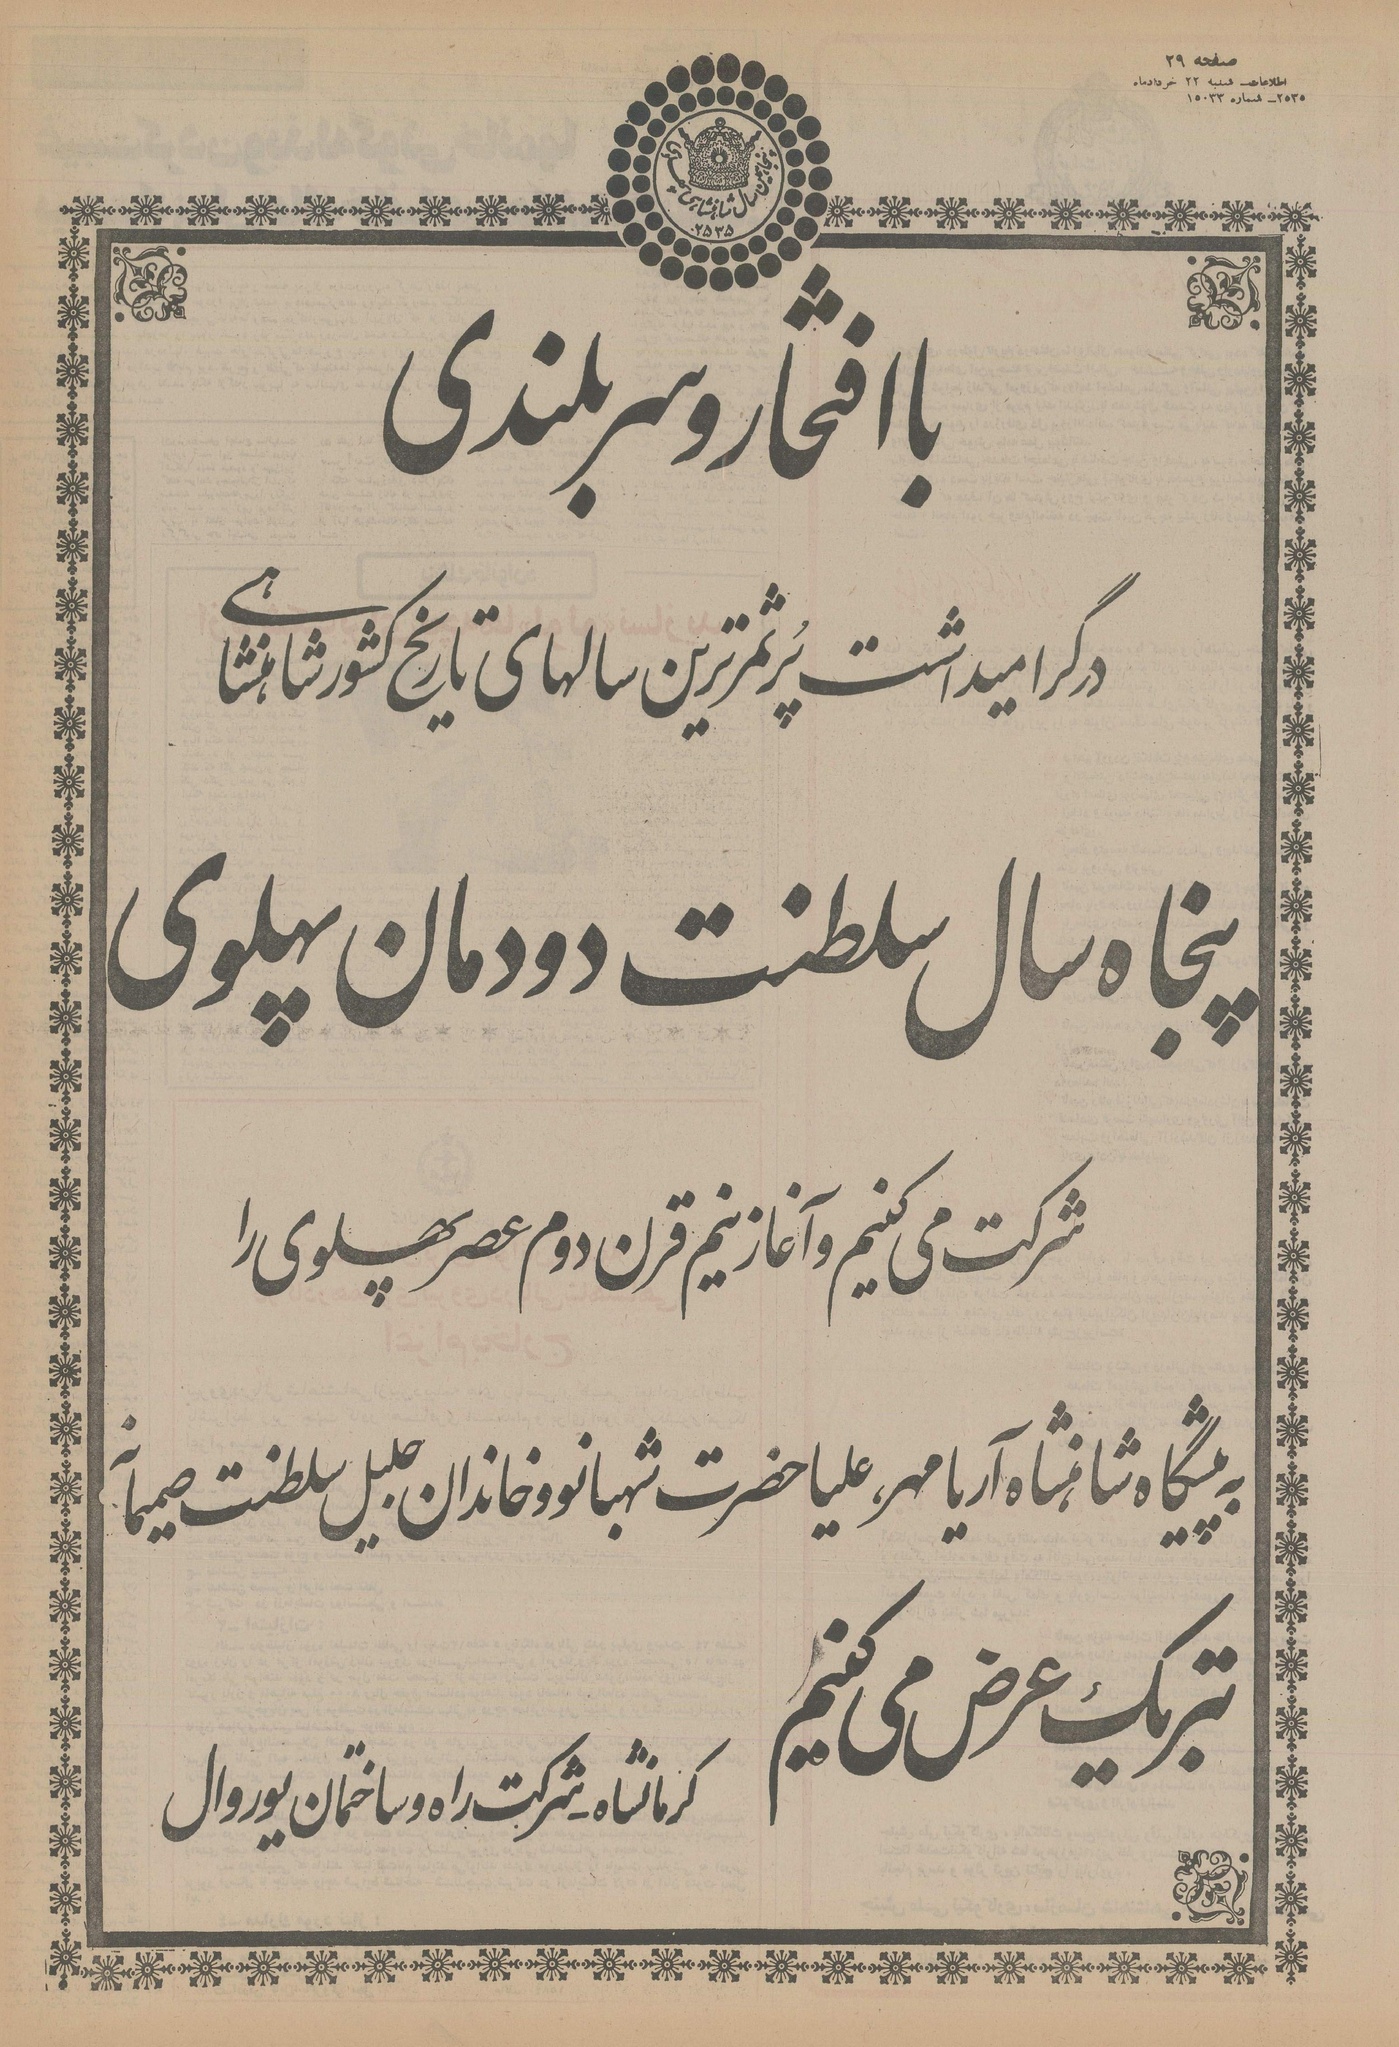 صفحه ۲۹
اطلاعات ـ شنبه ۲۲ خردادماه
۲۵۳۵ ـ شماره ۱۵۰۳۳
پنجاهمین سال شاهنشاهی پهلوی
۲۵۳۵
با افتخار و سربلندی
در گرامیداشت پُرثمرترین سالهای تاریخ کشور شاهنشاهی
پنجاه سال سلطنت دودمان پهلوی
شرکت می کنیم و آغاز نیم قرن دوم عصر پهلوی را
به پیشگاه شاهنشاه آریامهر، علیاحضرت شهبانو و خاندان جلیل سلطنت صمیمانه
تبریک عرض می کنیم
کرمانشاه ـ شرکت راه و ساختمان پوروال